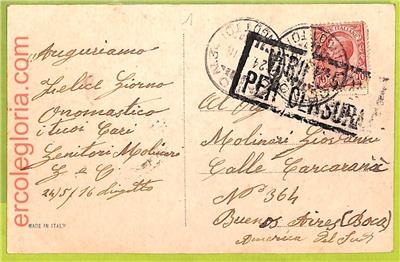 Auguriamo
Felice Giorno
Onomastico
i tuoi Cari
Genitori Molinari
24/5/16
MADE IN ITALY
VERIFICATO
PER CENSURA
Molinari Giovanni
Calle Carcarania
Nº 364
Buenos Aires (Boca)
America del Sud
ercolegloria.com